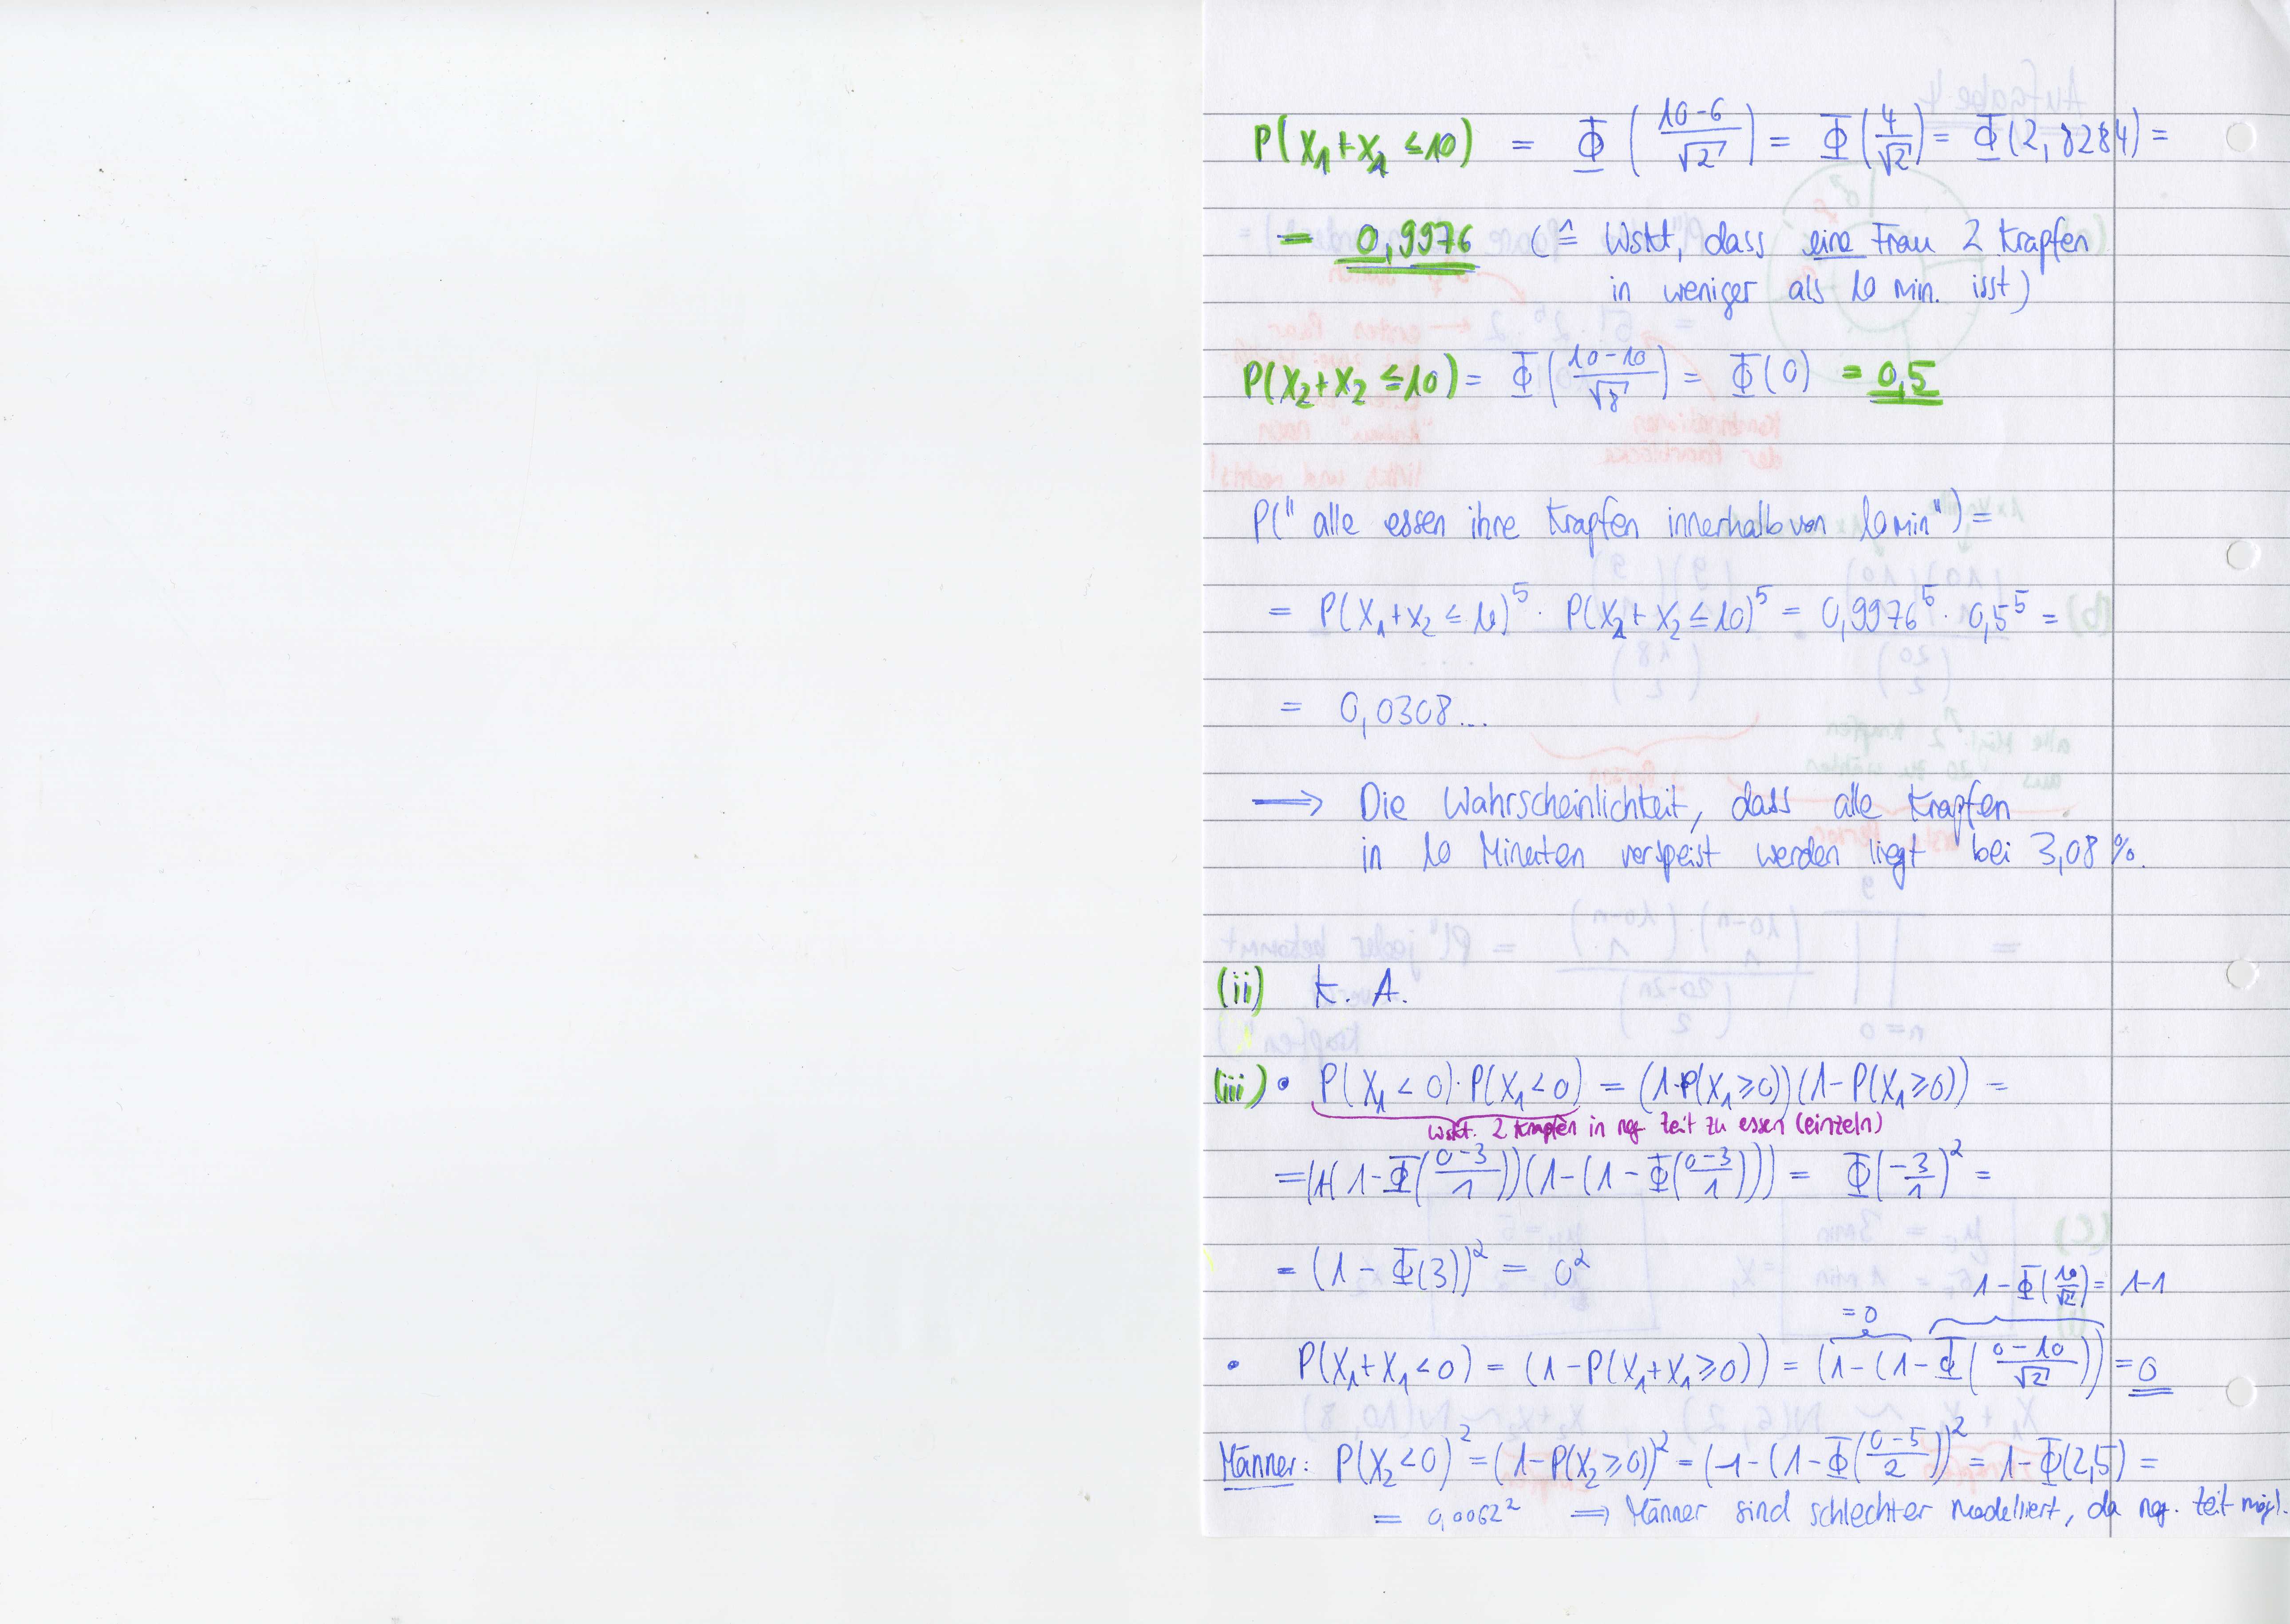 P(X₁+X₁ ≤ 10) = Φ((10-6)/√2) = Φ(4/√2) = Φ(2,8284) =
= 0,9976 (≙ Wskt, dass eine Frau 2 Krapfen
in weniger als 10 min. isst)
P(X₂+X₂ ≤ 10) = Φ((10-10)/√8) = Φ(0) = 0,5
P("alle essen ihre Krapfen innerhalb von 10 min") =
= P(X₁+X₂ ≤ 10)⁵ · P(X₂+X₂ ≤ 10)⁵ = 0,9976⁵ · 0,5⁵ =
= 0,0308...
⟹ Die Wahrscheinlichkeit, dass alle Krapfen
in 10 Minuten verspeist werden liegt bei 3,08 %.
(ii) K. A.
(iii) • P(X₁ < 0) · P(X₁ < 0) = (1-P(X₁ ≥ 0))(1-P(X₁ ≥ 0)) =
Wskt. 2 Krapfen in neg. Zeit zu essen (einzeln)
= (1-(1-Φ((0-3)/1))(1-(1-Φ((0-3)/1))) = Φ(-3/1)² =
= (1 - Φ(3))² = 0²
1-Φ(10/√2) = 1-1
= 0
• P(X₁+X₁ < 0) = (1-P(X₁+X₁ ≥ 0)) = (1-(1-Φ((0-10)/√2)) = 0
Männer: P(X₂ < 0)² = (1-P(X₂ ≥ 0))² = (1-(1-Φ((0-5)/2))² = 1-Φ(2,5) =
= 0,0062² ⟹ Männer sind schlechter modelliert, da neg. Zeit mögl.